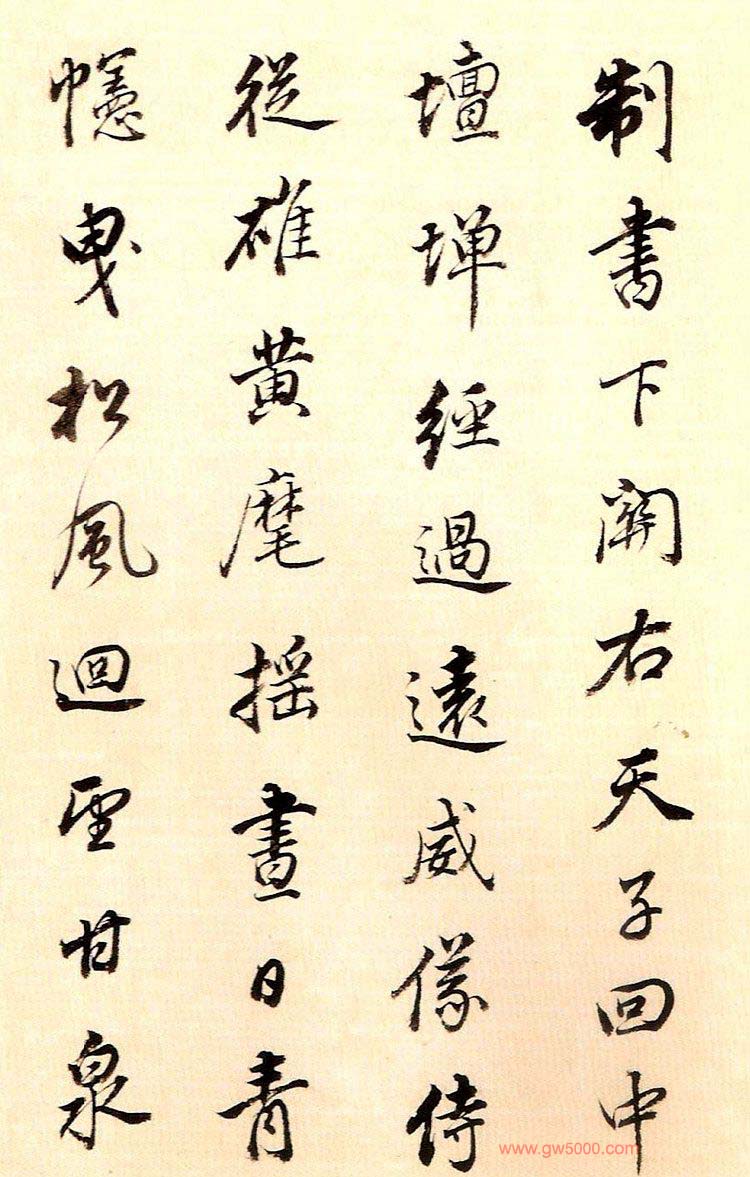 制書下關右天子回中
壇墠經過遠威儀侍
從雄黃麾搖晝日青
幰曳松風迴望甘泉
www.gw5000.com